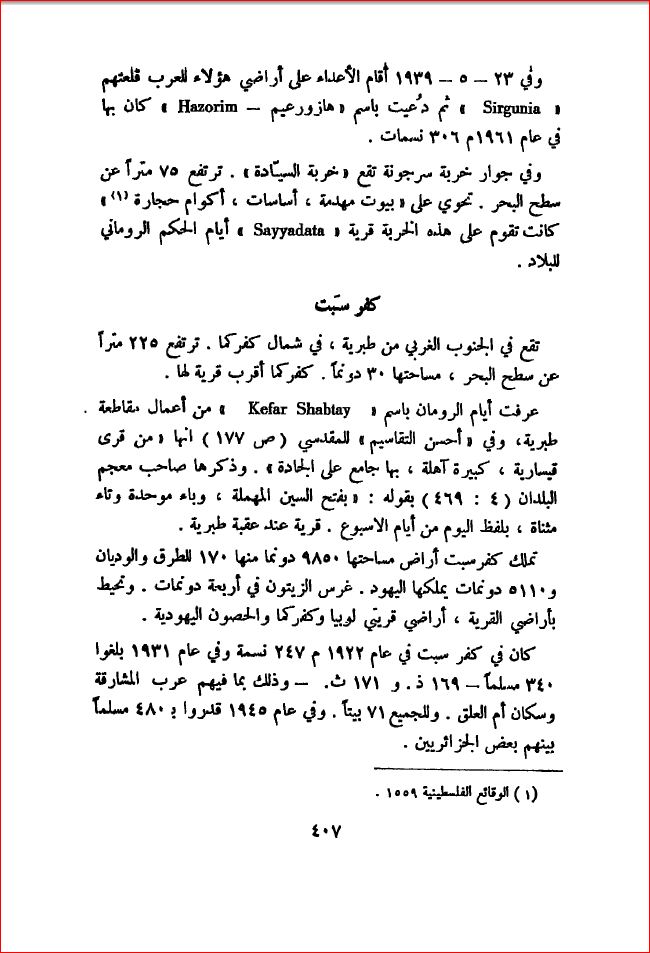 وفي ٢٣ – ٥ – ١٩٣٩ أقام الأعداء على أراضي هؤلاء للعرب قلعتهم
« Sirgunia » ثم دُعيت باسم «هازورعيم – Hazorim » كان بها
في عام ١٩٦١م ٣٠٦ نسمات .
وفي جوار خربة سرجونة تقع « خربة السيّادة » . ترتفع ٧٥ متراً عن
سطح البحر . تحوي على « بيوت مهدمة ، أساسات ، أكوام حجارة (١) »
كانت تقوم على هذه الخربة قرية « Sayyadata » أيام الحكم الروماني
للبلاد .
كفر سبّت
تقع في الجنوب الغربي من طبرية ، في شمال كفركما . ترتفع ٢٢٥ متراً
عن سطح البحر ، مساحتها ٣٠ دونماً . كفركما أقرب قرية لها .
عرفت أيام الرومان باسم « Kefar Shabtay » من أعمال مقاطعة .
طبرية، وفي « أحسن التقاسيم » للمقدسي (ص ١٧٧) انها « من قرى
قيسارية ، كبيرة آهلة ، بها جامع على الجادة » . وذكرها صاحب معجم
البلدان (٤ : ٤٦٩) بقوله : « بفتح السين المهملة ، وباء موحدة وتاء
مثناة ، بلفظ اليوم من أيام الاسبوع . قرية عند عقبة طبرية .
تملك كفرسبت أراض مساحتها ٩٨٥٠ دونما منها ١٧٠ للطرق والوديان
و٥١١٠ دونمات يملكها اليهود . غرس الزيتون في أربعة دونمات . وتحيط
بأراضي القرية ، أراضي قريتي لوبيا وكفركما والحصون اليهودية .
كان في كفر سبت في عام ١٩٢٢ م ٢٤٧ نسمة وفي عام ١٩٣١ بلغوا
٣٤٠ مسلماً – ١٦٩ ذ. و ١٧١ ث. – وذلك بما فيهم عرب المشارقة
وسكان أم العلق . وللجميع ٧١ بيتاً . وفي عام ١٩٤٥ قدروا بـ ٤٨٠ مسلماً
بينهم بعض الجزائريين .
(١) الوقائع الفلسطينية ١٥٥٩ .
٤٠٧